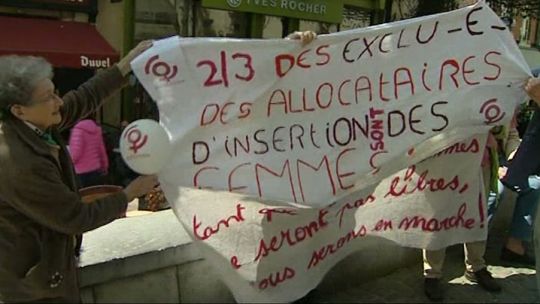 YVES ROCHER
Duvel
2/3 DES EXCLU-E-
DES ALLOCATAIRES
D'INSERTION SONT DES
FEMMES
tant que
e seront pas libres,
ous serons en marche!